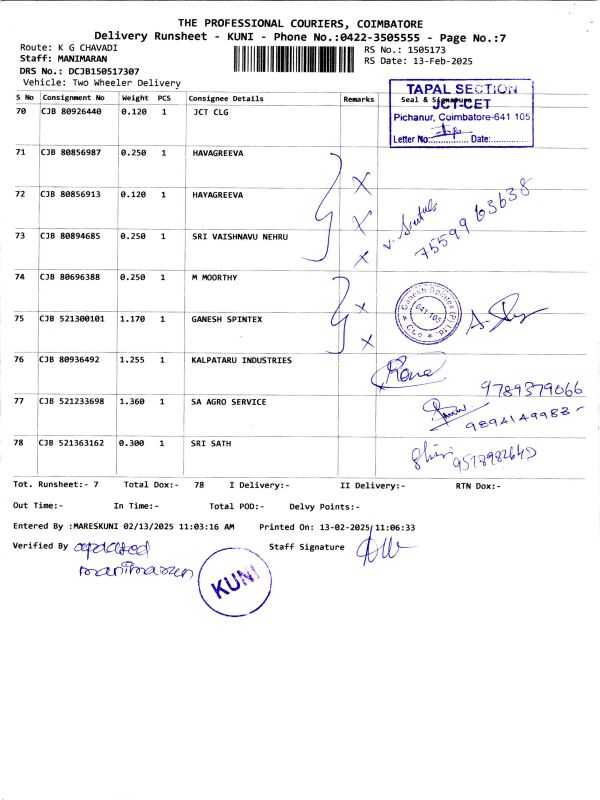 THE PROFESSIONAL COURIERS, COIMBATORE
Delivery Runsheet - KUNI - Phone No.:0422-3505555 - Page No.:7
Route: K G CHAVADI
RS No.: 1505173
Staff: MANIMARAN
RS Date: 13-Feb-2025
DRS No.: DCJB150517307
Vehicle: Two Wheeler Delivery
S No Consignment No Weight PCS Consignee Details Remarks Seal & Signature
TAPAL SECTION
JCT-CET
Pichanur, Coimbatore-641 105
Letter No:............... Date:..............
70 CJB 80926440 0.120 1 JCT CLG
71 CJB 80856987 0.250 1 HAVAGREEVA
72 CJB 80856913 0.120 1 HAYAGREEVA
7559963638
73 CJB 80894685 0.250 1 SRI VAISHNAVU NEHRU
74 CJB 80696388 0.250 1 M MOORTHY
Ganesh Spintex (P) Ltd.
641 105
75 CJB 521300101 1.170 1 GANESH SPINTEX
76 CJB 80936492 1.255 1 KALPATARU INDUSTRIES
9789379066
77 CJB 521233698 1.360 1 SA AGRO SERVICE
9894149988-
78 CJB 521363162 0.300 1 SRI SATH
Tot. Runsheet:- 7 Total Dox:- 78 I Delivery:- II Delivery:- RTN Dox:-
Out Time:- In Time:- Total POD:- Delvy Points:-
Entered By :MARESKUNI 02/13/2025 11:03:16 AM Printed On: 13-02-2025/11:06:33
Verified By
Staff Signature
manimaran
KUNI